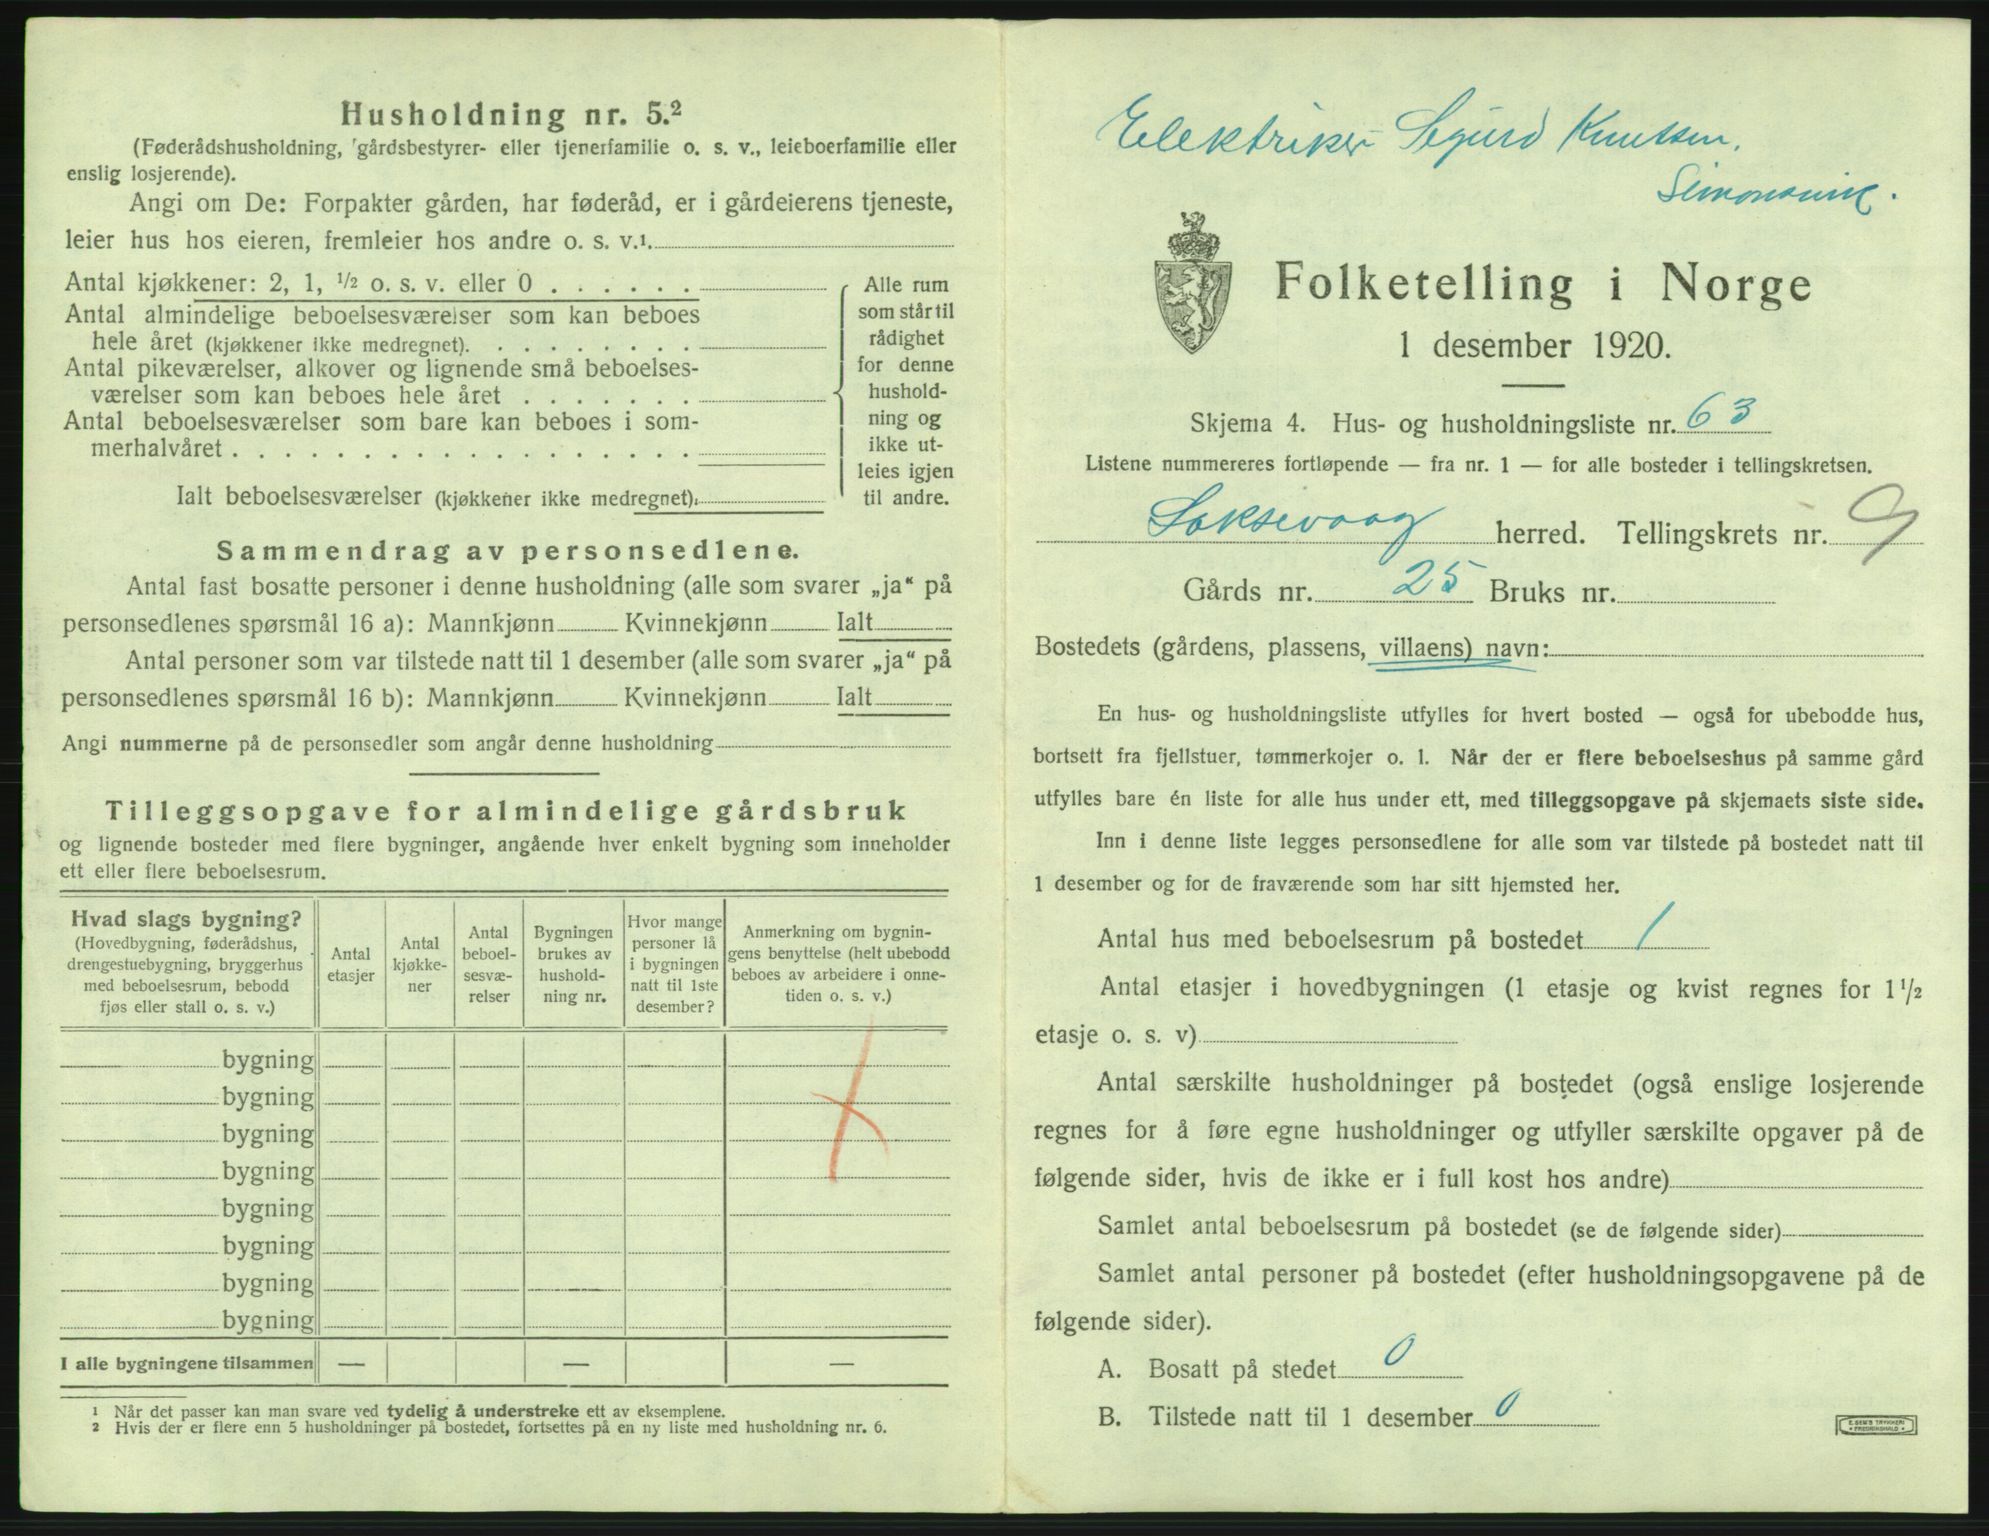 Husholdning nr. 5.²
(Føderådshusholdning, gårdsbestyrer- eller tjenerfamilie o. s. v., leieboerfamilie eller
enslig losjerende).
Angi om De: Forpakter gården, har føderåd, er i gårdeierens tjeneste,
leier hus hos eieren, fremleier hos andre o. s. v.¹.
Antal kjøkkener: 2, 1, ½ o. s. v. eller 0 . . . . . .
Antal almindelige beboelsesværelser som kan beboes
hele året (kjøkkener ikke medregnet). . . . . . . . .
Antal pikeværelser, alkover og lignende små beboelses-
værelser som kan beboes hele året . . . . . . .
Antal beboelsesværelser som bare kan beboes i som-
merhalvåret . . . . . . . . . . . . . . . . . .
Ialt beboelsesværelser (kjøkkener ikke medregnet).
Alle rum
som står til
rådighet
for denne
hushold-
ning og
ikke ut-
leies igjen
til andre.
Sammendrag av personsedlene.
Antal fast bosatte personer i denne husholdning (alle som svarer „ja“ på
personsedlenes spørsmål 16 a): Mannkjønn Kvinnekjønn Ialt
Antal personer som var tilstede natt til 1 desember (alle som svarer „ja“ på
personsedlenes spørsmål 16 b): Mannkjønn Kvinnekjønn Ialt
Angi nummerne på de personsedler som angår denne husholdning
Tilleggsopgave for almindelige gårdsbruk
og lignende bosteder med flere bygninger, angående hver enkelt bygning som inneholder
ett eller flere beboelsesrum.
Hvad slags bygning?
(Hovedbygning, føderådshus,
drengestuebygning, bryggerhus
med beboelsesrum, bebodd
fjøs eller stall o. s. v.)
Antal
etasjer
Antal
kjøkke-
ner
Antal
beboel-
sesvæ-
relser
Bygningen
brukes av
hushold-
ning nr.
Hvor mange
personer lå
i bygningen
natt til 1ste
desember?
Anmerkning om bygnin-
gens benyttelse (helt ubebodd
beboes av arbeidere i onne-
tiden o. s. v.)
bygning
bygning
bygning
bygning
bygning
bygning
bygning
bygning
I alle bygningene tilsammen — — —
¹ Når det passer kan man svare ved tydelig å understreke ett av eksemplene.
² Hvis der er flere enn 5 husholdninger på bostedet, fortsettes på en ny liste med husholdning nr. 6.
Elektriker Sigurd Knutsen.
Simonsvik.
Folketelling i Norge
1 desember 1920.
Skjema 4. Hus- og husholdningsliste nr. 63
Listene nummereres fortløpende — fra nr. 1 — for alle bosteder i tellingskretsen.
Laksevaag herred. Tellingskrets nr. 9
Gårds nr. 25 Bruks nr.
Bostedets (gårdens, plassens, villaens) navn:
En hus- og husholdningsliste utfylles for hvert bosted — også for ubebodde hus,
bortsett fra fjellstuer, tømmerkojer o. l. Når der er flere beboelseshus på samme gård
utfylles bare én liste for alle hus under ett, med tilleggsopgave på skjemaets siste side.
Inn i denne liste legges personsedlene for alle som var tilstede på bostedet natt til
1 desember og for de fraværende som har sitt hjemsted her.
Antal hus med beboelsesrum på bostedet 1
Antal etasjer i hovedbygningen (1 etasje og kvist regnes for 1½
etasje o. s. v)
Antal særskilte husholdninger på bostedet (også enslige losjerende
regnes for å føre egne husholdninger og utfyller særskilte opgaver på de
følgende sider, hvis de ikke er i full kost hos andre)
Samlet antal beboelsesrum på bostedet (se de følgende sider)
Samlet antal personer på bostedet (efter husholdningsopgavene på de
følgende sider).
A. Bosatt på stedet 0
B. Tilstede natt til 1 desember 0
E. SEM'S TRYKKERI
FREDRIKSHALD